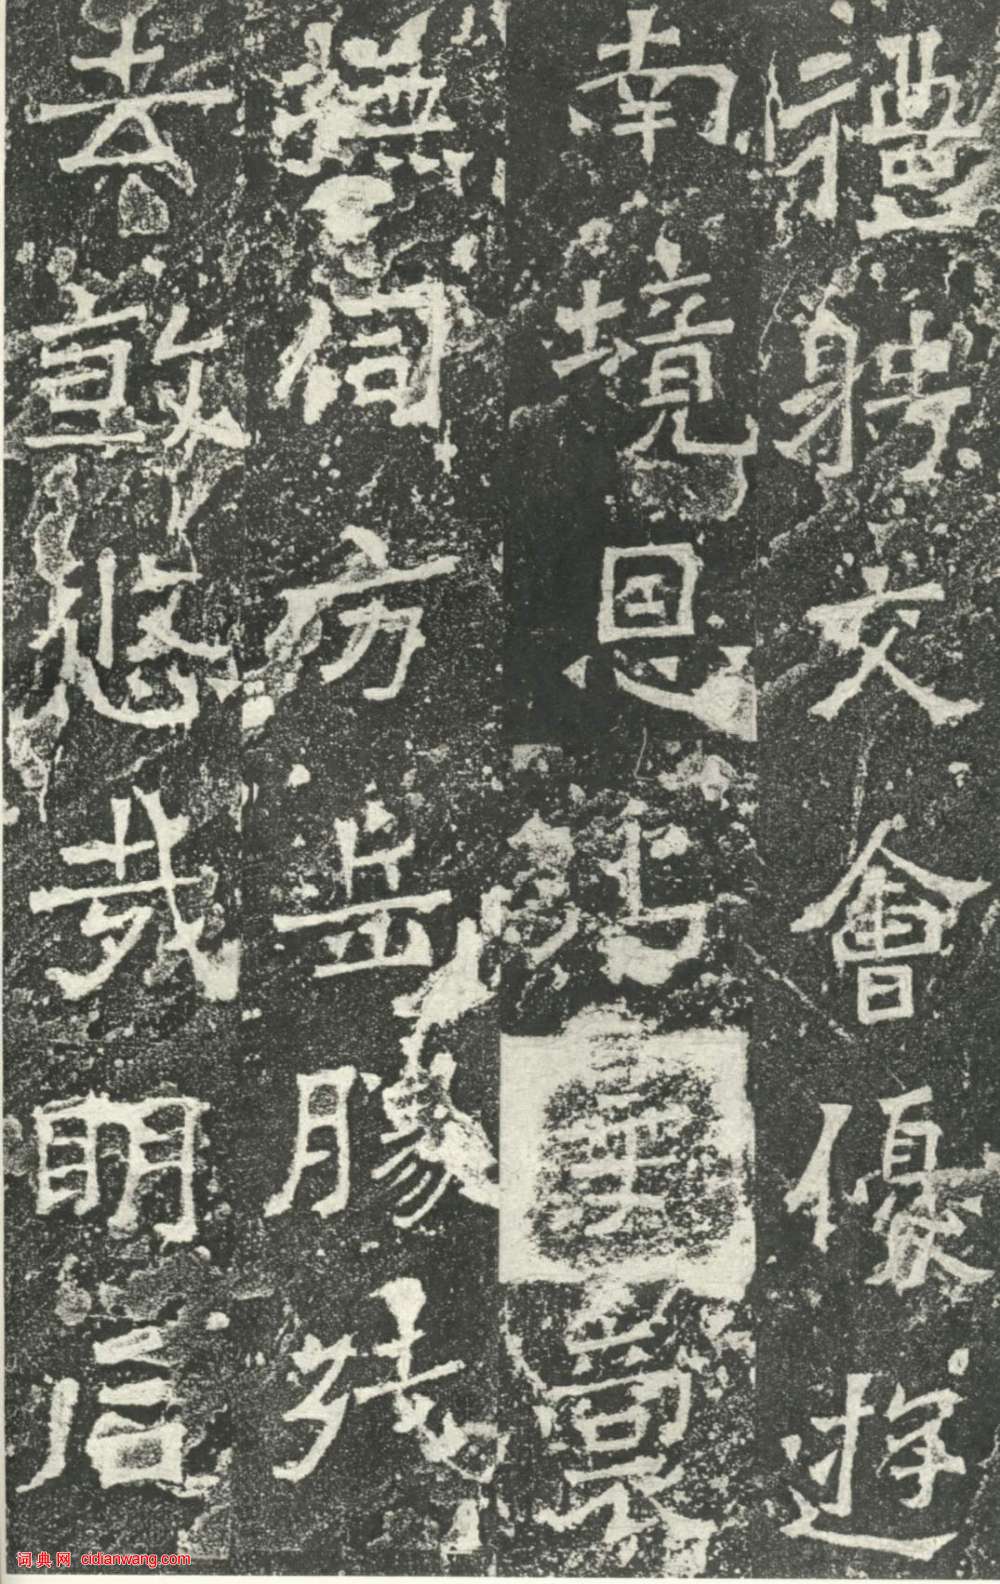 禮聘交會優遊
南境恩華裔
撫伺方岳勝殘
去悠哉明后
词典网 cidianwang.com